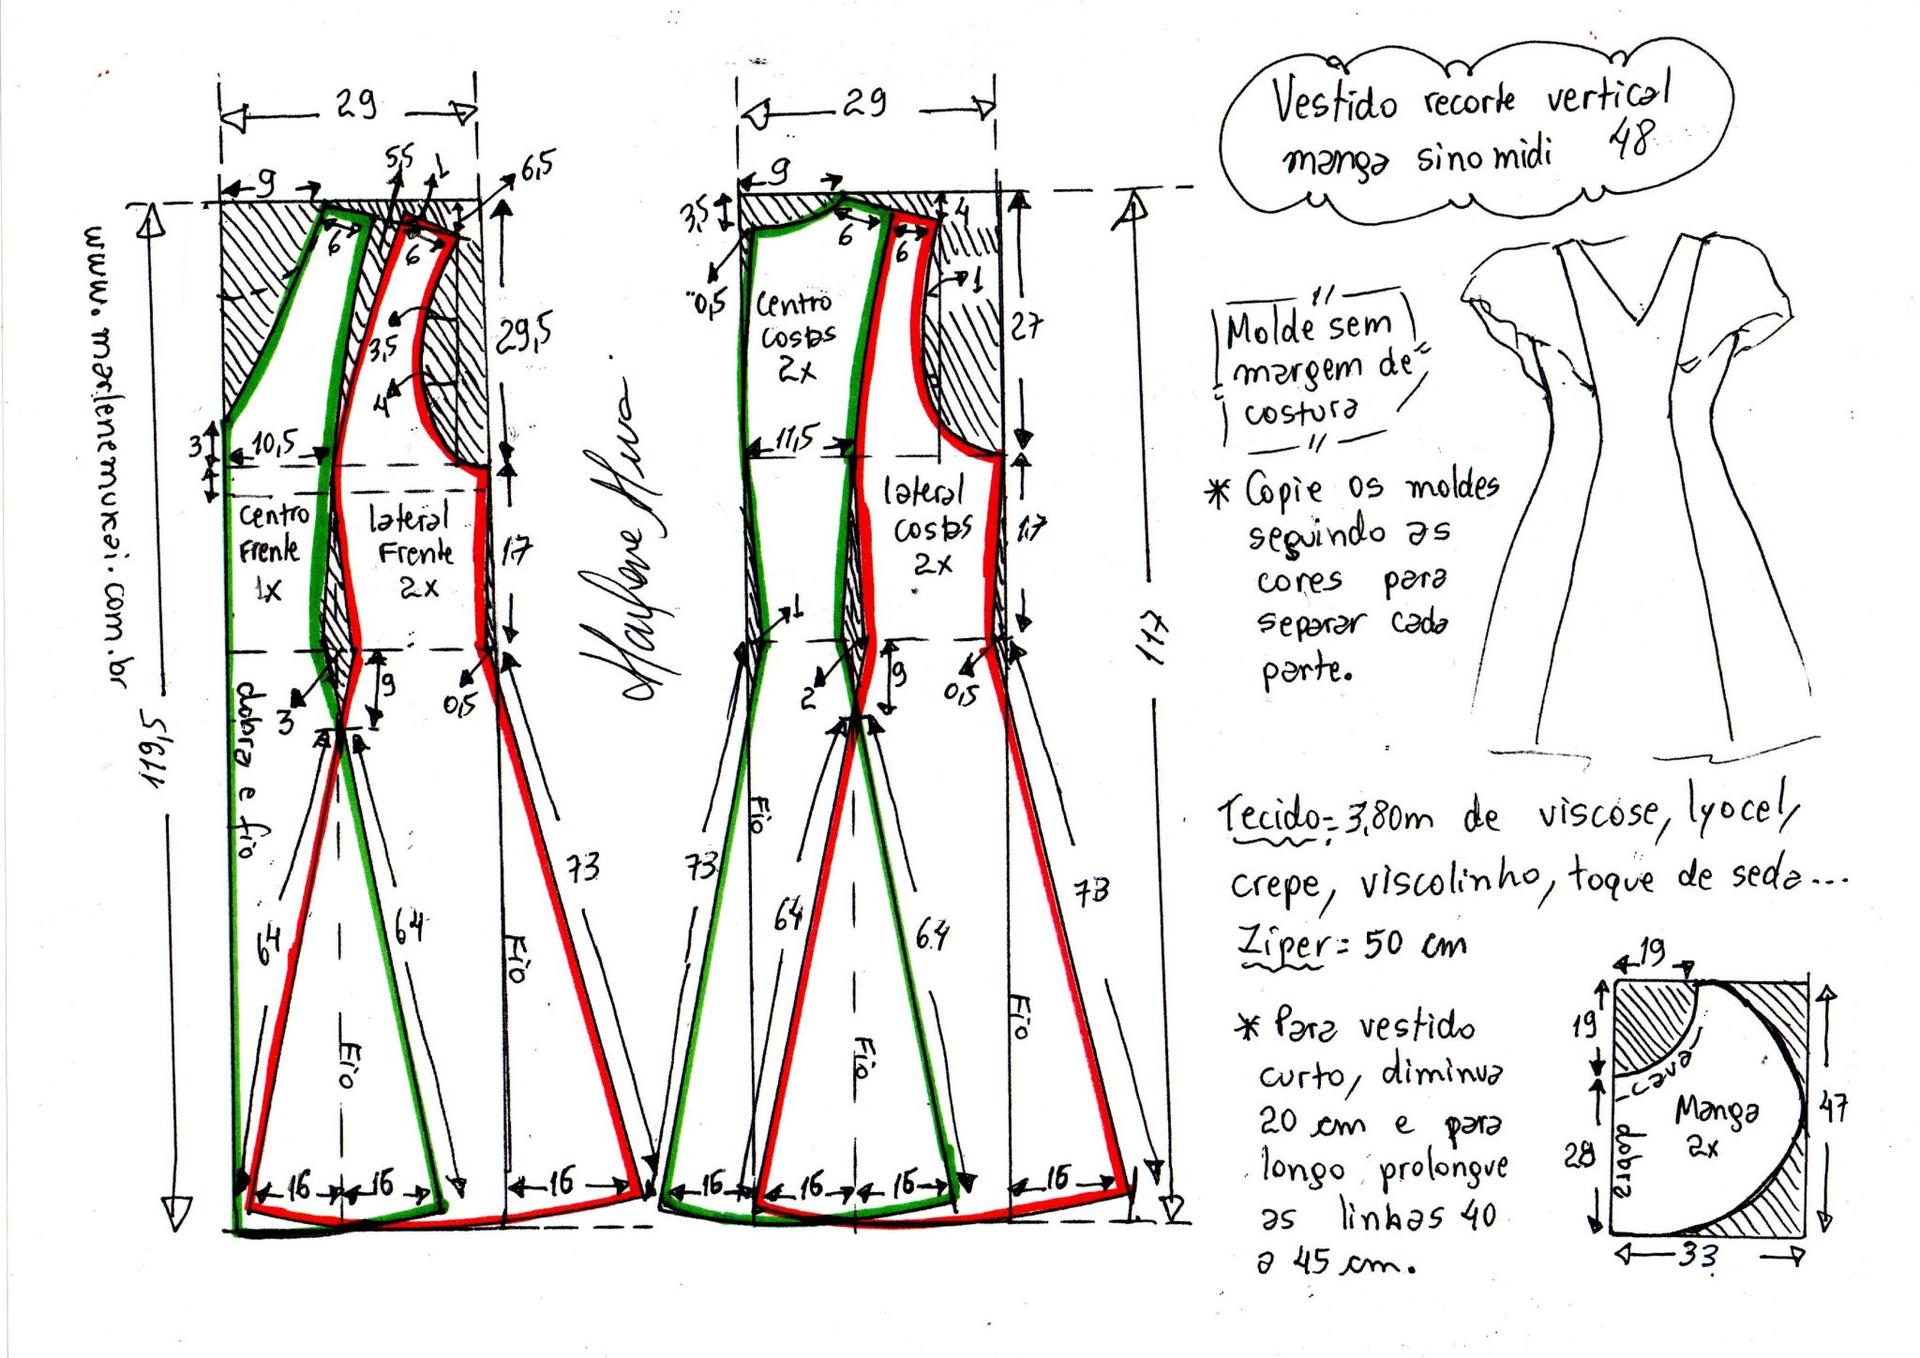 Vestido recorte vertical
manga sino midi 48
29
9
5,5
1
6,5
6
6
3,5
4
29,5
3
10,5
Centro
Frente
1x
lateral
Frente
2x
17
3
9
0,5
dobra e fio
73
64
64
Fio
Fio
16
16
16
119,5
www.marlenemukai.com.br
29
9
3,5
6
6
4
1
0,5
Centro
Costas
2x
27
11,5
lateral
costas
2x
17
1
2
9
0,5
Fio
73
64
64
73
Fio
Fio
16
16
16
16
117
Molde sem
margem de
costura
* Copie os moldes
seguindo as
cores para
separar cada
parte.
Tecido= 3,80m de viscose, lyocel,
crepe, viscolinho, toque de seda...
Zíper= 50 cm
* Para vestido
curto, diminua
20 cm e para
longo prolongue
as linhas 40
a 45 cm.
19
19
cava
Manga
2x
47
28
dobra
33